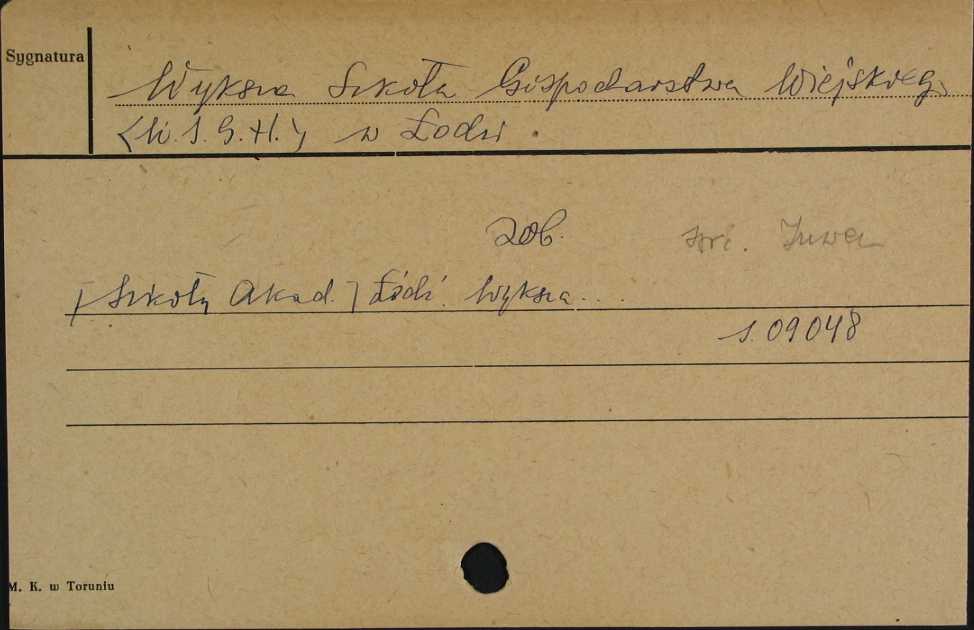 Sygnatura
Wyższa Szkoła Gospodarstwa Wiejskiego
(W. S. G. W.) w Łodzi.
zob.
[Szkoły Akad.] Łódź. Wyższa...
S. 09048
M. K. w Toruniu